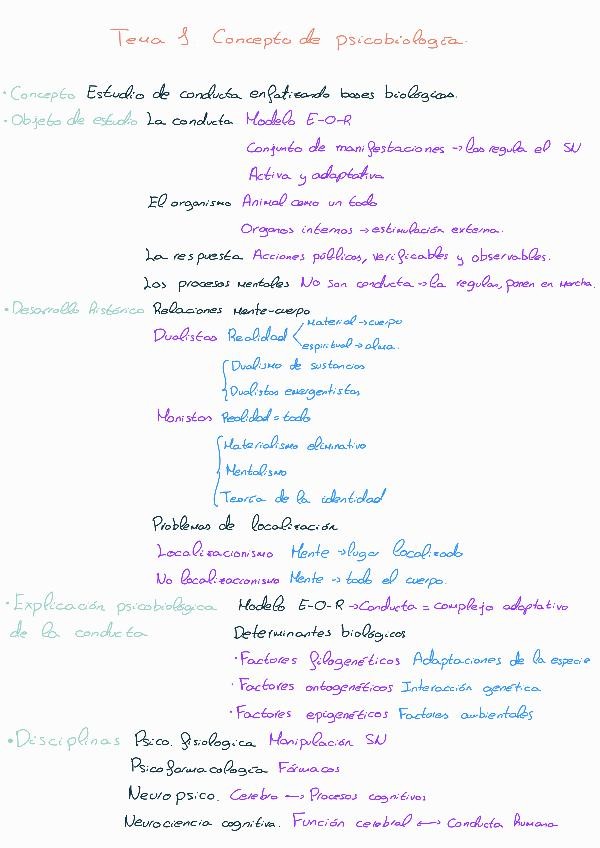 Tema 1 Concepto de psicobiología.
·Concepto Estudio de conducta enfatizando bases biológicas.
·Objeto de estudio La conducta Modelo E-O-R
Conjunto de manifestaciones → las regula el SN
Activa y adaptativa
El organismo Animal como un todo
Organos internos → estimulación externa.
La respuesta Acciones públicas, verificables y observables.
Los procesos mentales No son conducta → la regulan, ponen en marcha.
·Desarrollo histórico Relaciones mente-cuerpo
Dualistas Realidad material → cuerpo
espiritual → alma.
Dualismo de sustancias
Dualistas emergentistas
Monistas Realidad = todo
Materialismo eliminativo
Mentalismo
Teoría de la identidad
Problemas de localización
Localizacionismo Mente → lugar localizado
No localizacionismo Mente → todo el cuerpo.
·Explicación psicobiológica Modelo E-O-R → Conducta = complejo adaptativo
de la conducta Determinantes biológicos
·Factores filogenéticos Adaptaciones de la especie
·Factores ontogenéticos Interacción genética
·Factores epigenéticos Factores ambientales
·Disciplinas Psico. fisiologica Manipulación SN
Psicofarmacología Fármacos
Neuropsico. Cerebro ↔ Procesos cognitivos
Neurociencia cognitiva. Función cerebral ↔ Conducta humana